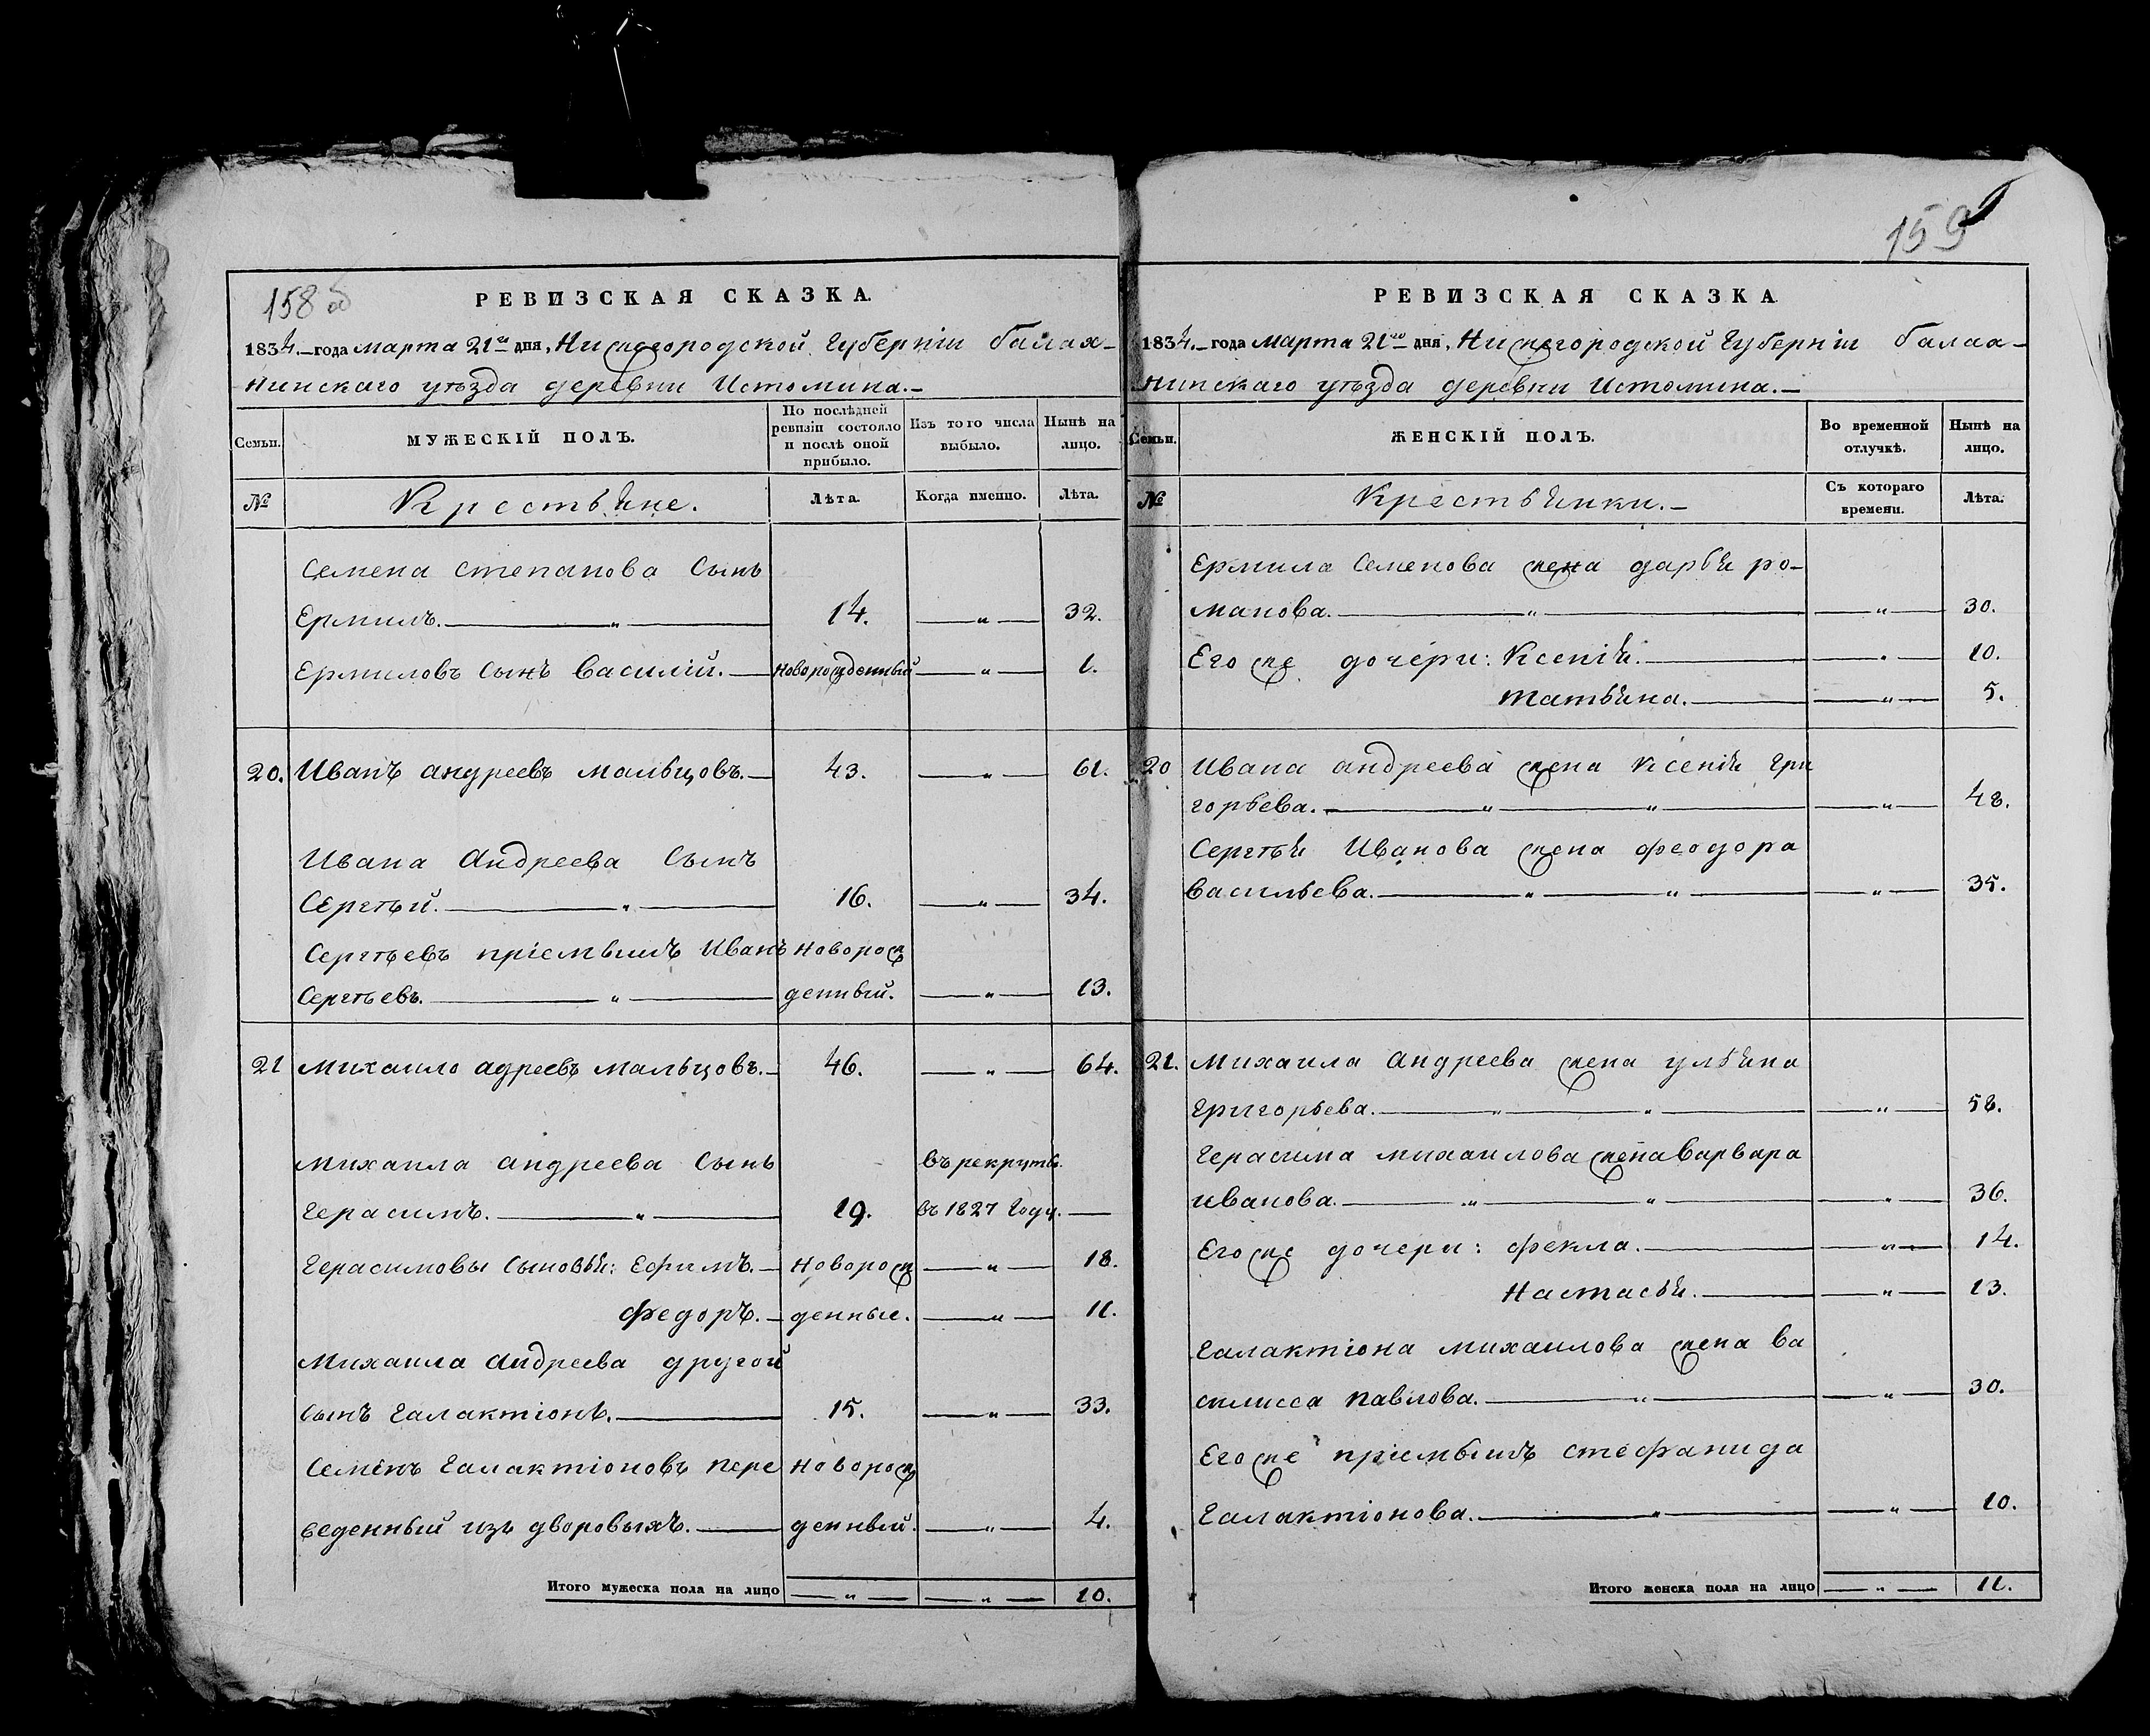 158 об
РЕВИЗСКАЯ СКАЗКА.
1834.—года марта 21го дня, Нижегородской Губерніи балах-
нинскаго уѣзда деревни Истомина.—
Семьи.
МУЖЕСКІЙ ПОЛЪ.
По послѣдней ревизіи состояло и послѣ оной прибыло.
Изъ того числа выбыло.
Нынѣ на лицо.
№
Крестьяне.
Лѣта.
Когда именно.
Лѣта.
Семена степанова Сынъ
Ермилъ. 14. — „ — 32.
Ермиловъ сынъ василій. новорожденный — „ — 1.
20. Иванъ андреевъ мальцовъ. 43. — „ — 61.
Ивана Андреева Сынъ
Сергѣй. 16. — „ — 34.
Сергѣевъ пріемышъ Иванъ новорож
Сергѣевъ. денный. — „ — 13.
21 михаило адреевъ мальцовъ. 46. — „ — 64.
михаила андреева Сынъ въ рекруты
герасимъ. 19. въ 1827 Году. —
герасимовы сыновья: Ефимъ. новорож — „ — 18.
федоръ. денные. — „ — 11.
михаила андреева другой
сынъ галактіонъ. 15. — „ — 33.
семенъ галактіоновъ пере новорож
веденный изъ дворовыхъ. денный. — „ — 4.
Итого мужеска пола на лицо — „ — — „ — 10.
159
РЕВИЗСКАЯ СКАЗКА
1834.—года марта 21го дня, Нижегородской Губерніи балах-
нинскаго уѣзда деревни Истомина.—
Семьи.
ЖЕНСКІЙ ПОЛЪ.
Во временной отлучкѣ.
Нынѣ на лицо.
№
Крестьянки.—
Съ котораго времени.
Лѣта.
Ермила семенова жена дарья ро-
манова. — „ — 30.
Его же дочери: Ксенія. — „ — 10.
татьяна. — „ — 5.
20 Ивана андреева жена Ксенія гри
горьева. — „ — 48.
Сергѣя Иванова жена феодора
васильева. — „ — 35.
21. михаила андреева жена ульяна
григорьева. — „ — 58.
герасима михаилова жена варвара
иванова. — „ — 36.
Его же дочери: фекла. — „ — 14.
Настасья. — „ — 13.
галактіона михаилова жена ва
силисса павлова. — „ — 30.
Его же пріемышъ стефанида
галактіонова. — „ — 10.
Итого женска пола на лицо — „ — 11.